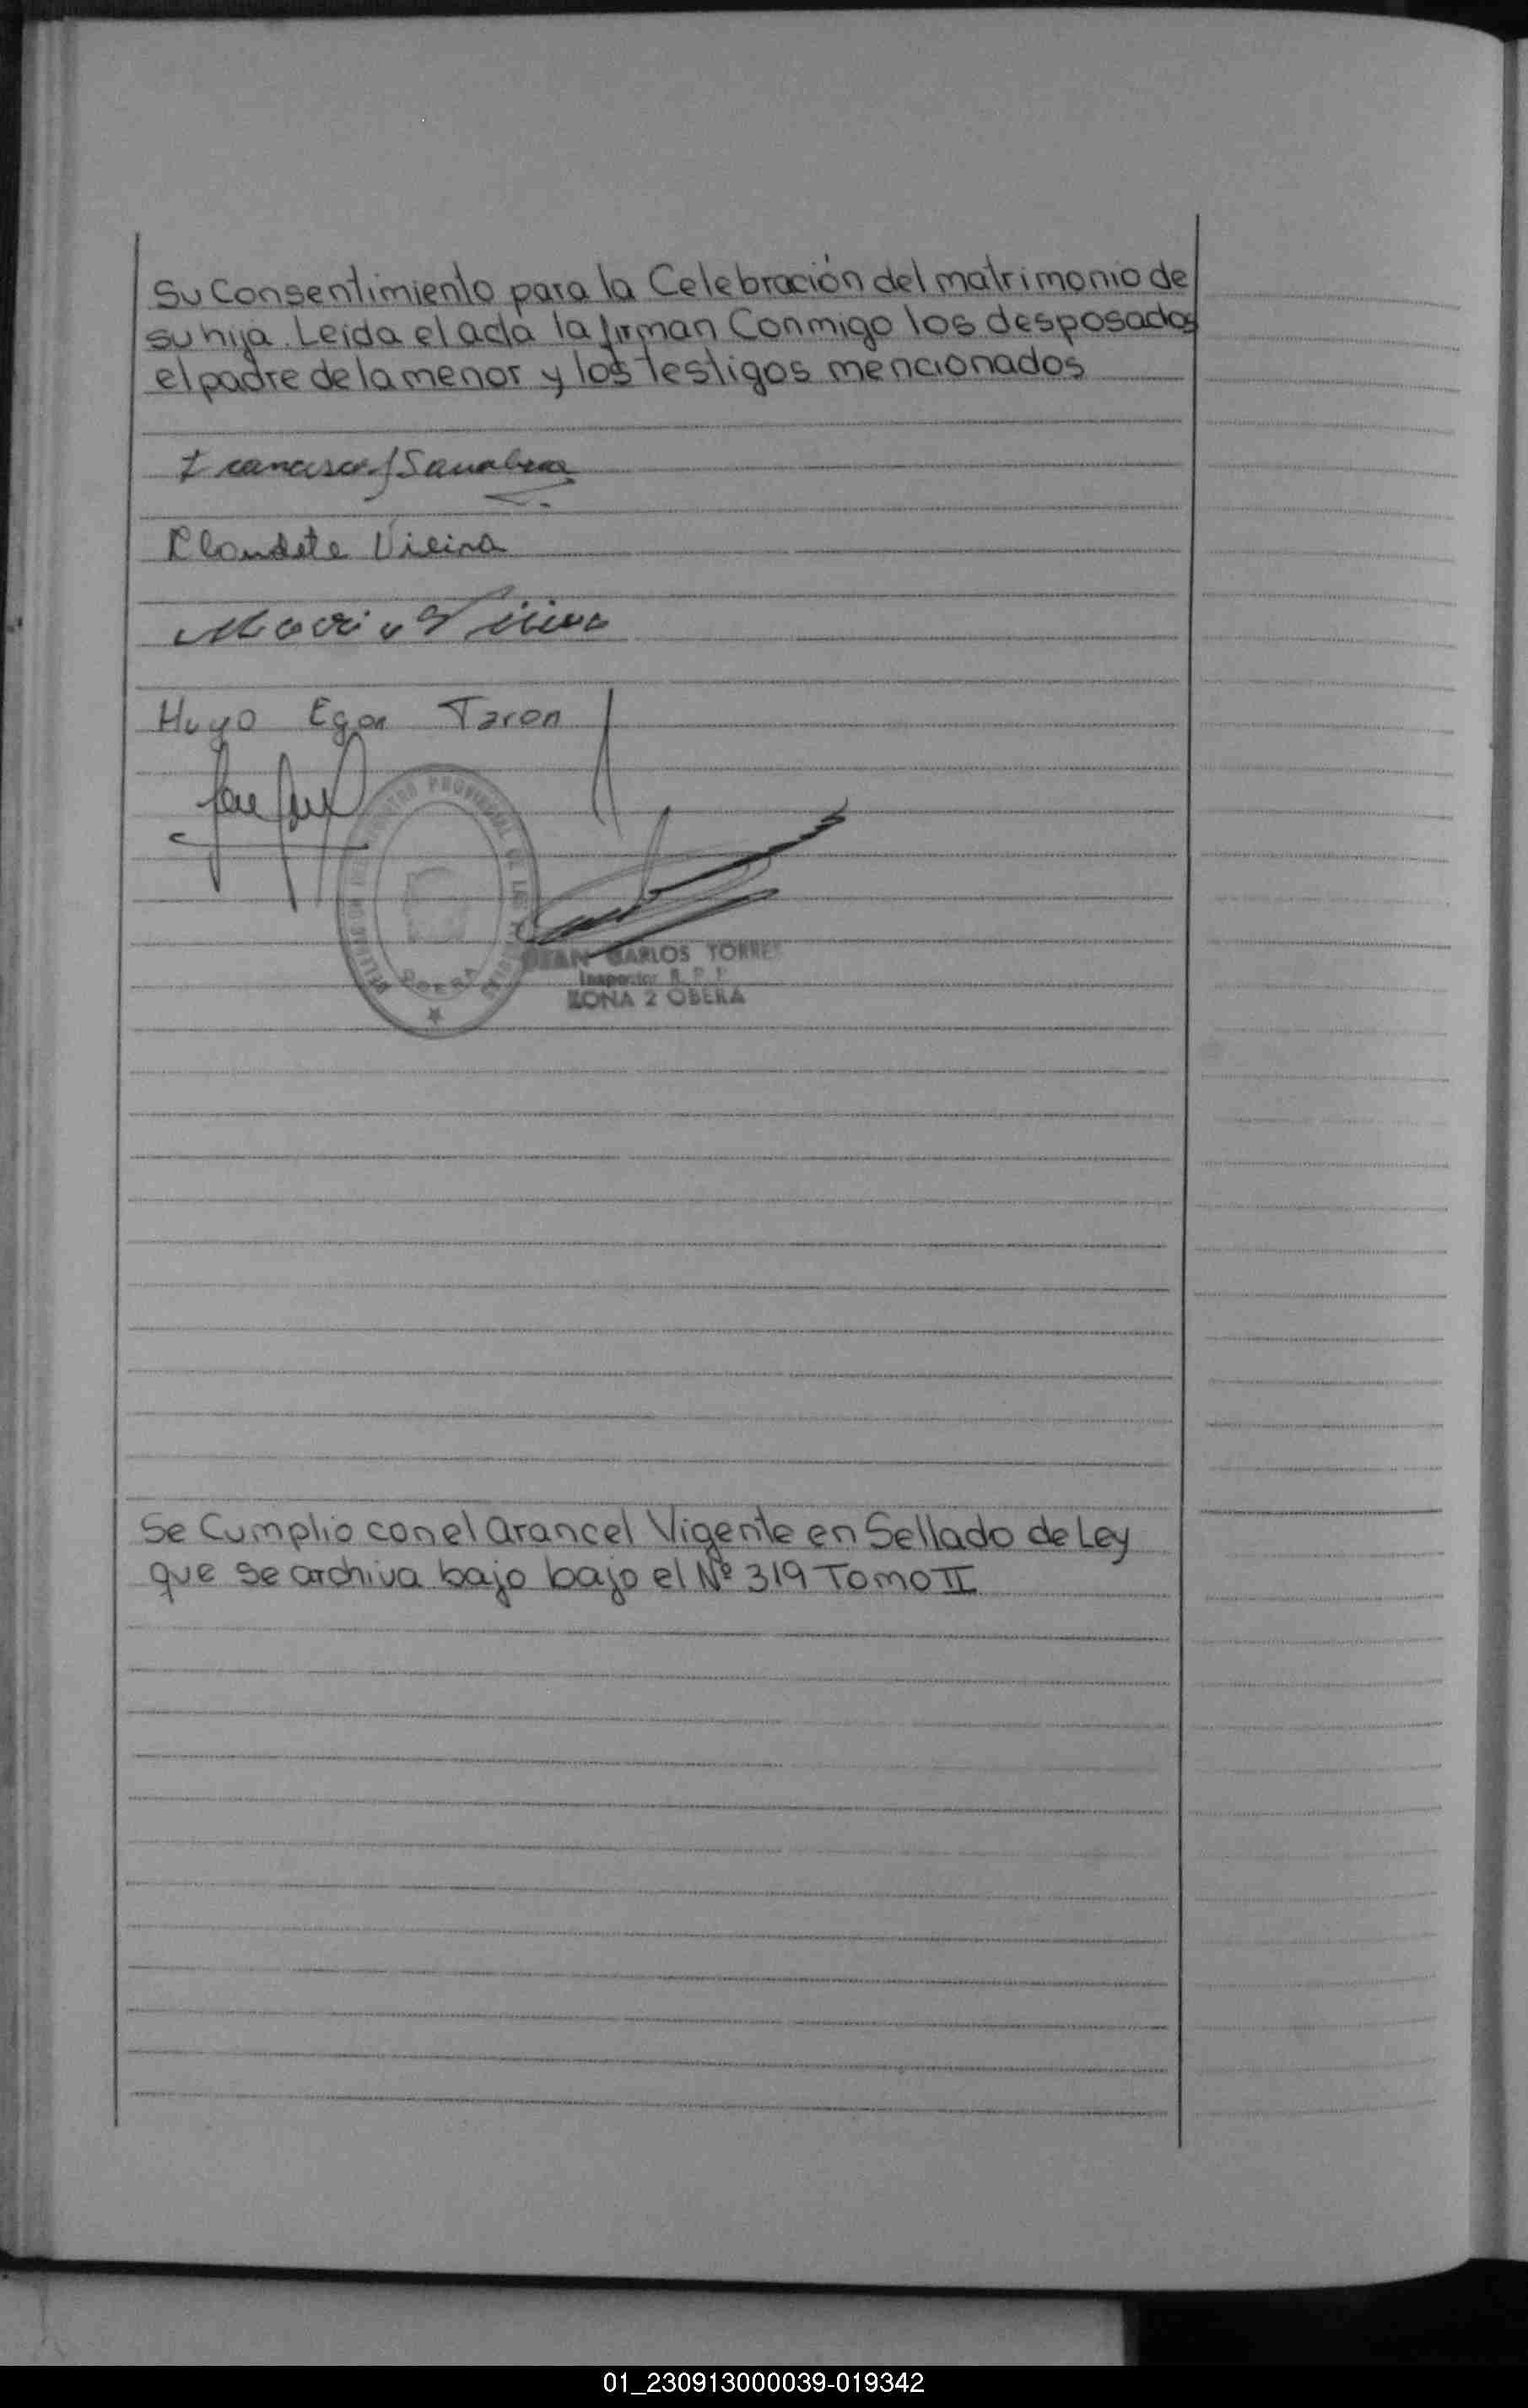 Su Consentimiento para la Celebración del matrimonio de
su hija. Leida el acta la firman Conmigo los desposados
el padre de la menor y los testigos mencionados
Francisco Sanabria
Claudete Vieira
Mario Vieira
Hugo Egon Taron
PROVINCIAL DE LAS
OBERA
JUAN CARLOS TORRES
Inspector R. P. P.
ZONA 2 OBERA
Se Cumplio con el arancel Vigente en Sellado de Ley
que se archiva bajo bajo el Nº 319 Tomo II
01_230913000039-019342